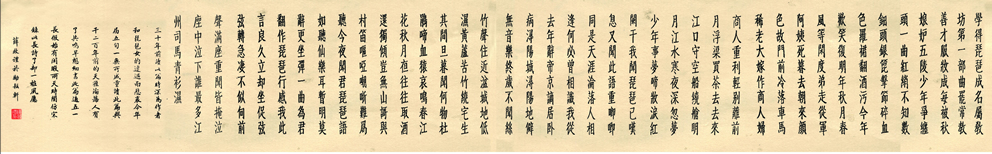 學得琵琶成名屬教
坊第一部曲罷常教
善才服妝成每被秋
娘妒五陵少年爭纏
頭一曲紅綃不知數
鈿頭銀篦擊節碎血
色羅裙翻酒污今年
歡笑復明年秋月春
風等閒度弟走從軍
阿姨死暮去朝來顏
色故門前冷落車馬
稀老大嫁作商人婦
商人重利輕別離前
月浮梁買茶去去來
江口守空船繞船明
月江水寒夜深忽夢
少年事夢啼妝淚紅
闌干我聞琵琶已嘆
息又聞此語重唧唧
同是天涯淪落人相
逢何必曾相識我從
去年辭帝京謫居臥
病潯陽城潯陽地僻
無音樂終歲不聞絲
竹聲住近湓城地低
濕黃蘆苦竹繞宅生
其間旦暮聞何物杜
鵑啼血猿哀鳴春江
花秋月夜往往取酒
還獨傾豈無山謌與
村笛嘔啞嘲哳難爲
聽今夜聞君琵琶語
如聽仙樂耳暫明莫
辭更坐彈一曲爲君
翻作琵琶行感我此
言良久立却坐促弦
弦轉急凄不似向前
聲滿座重聞皆掩泣
座中泣下誰最多江
州司馬青衫濕
三十年前讀以詩深爲作者
和琵琶女的遭遇而悲今年
千二百年前的天涯淪落人